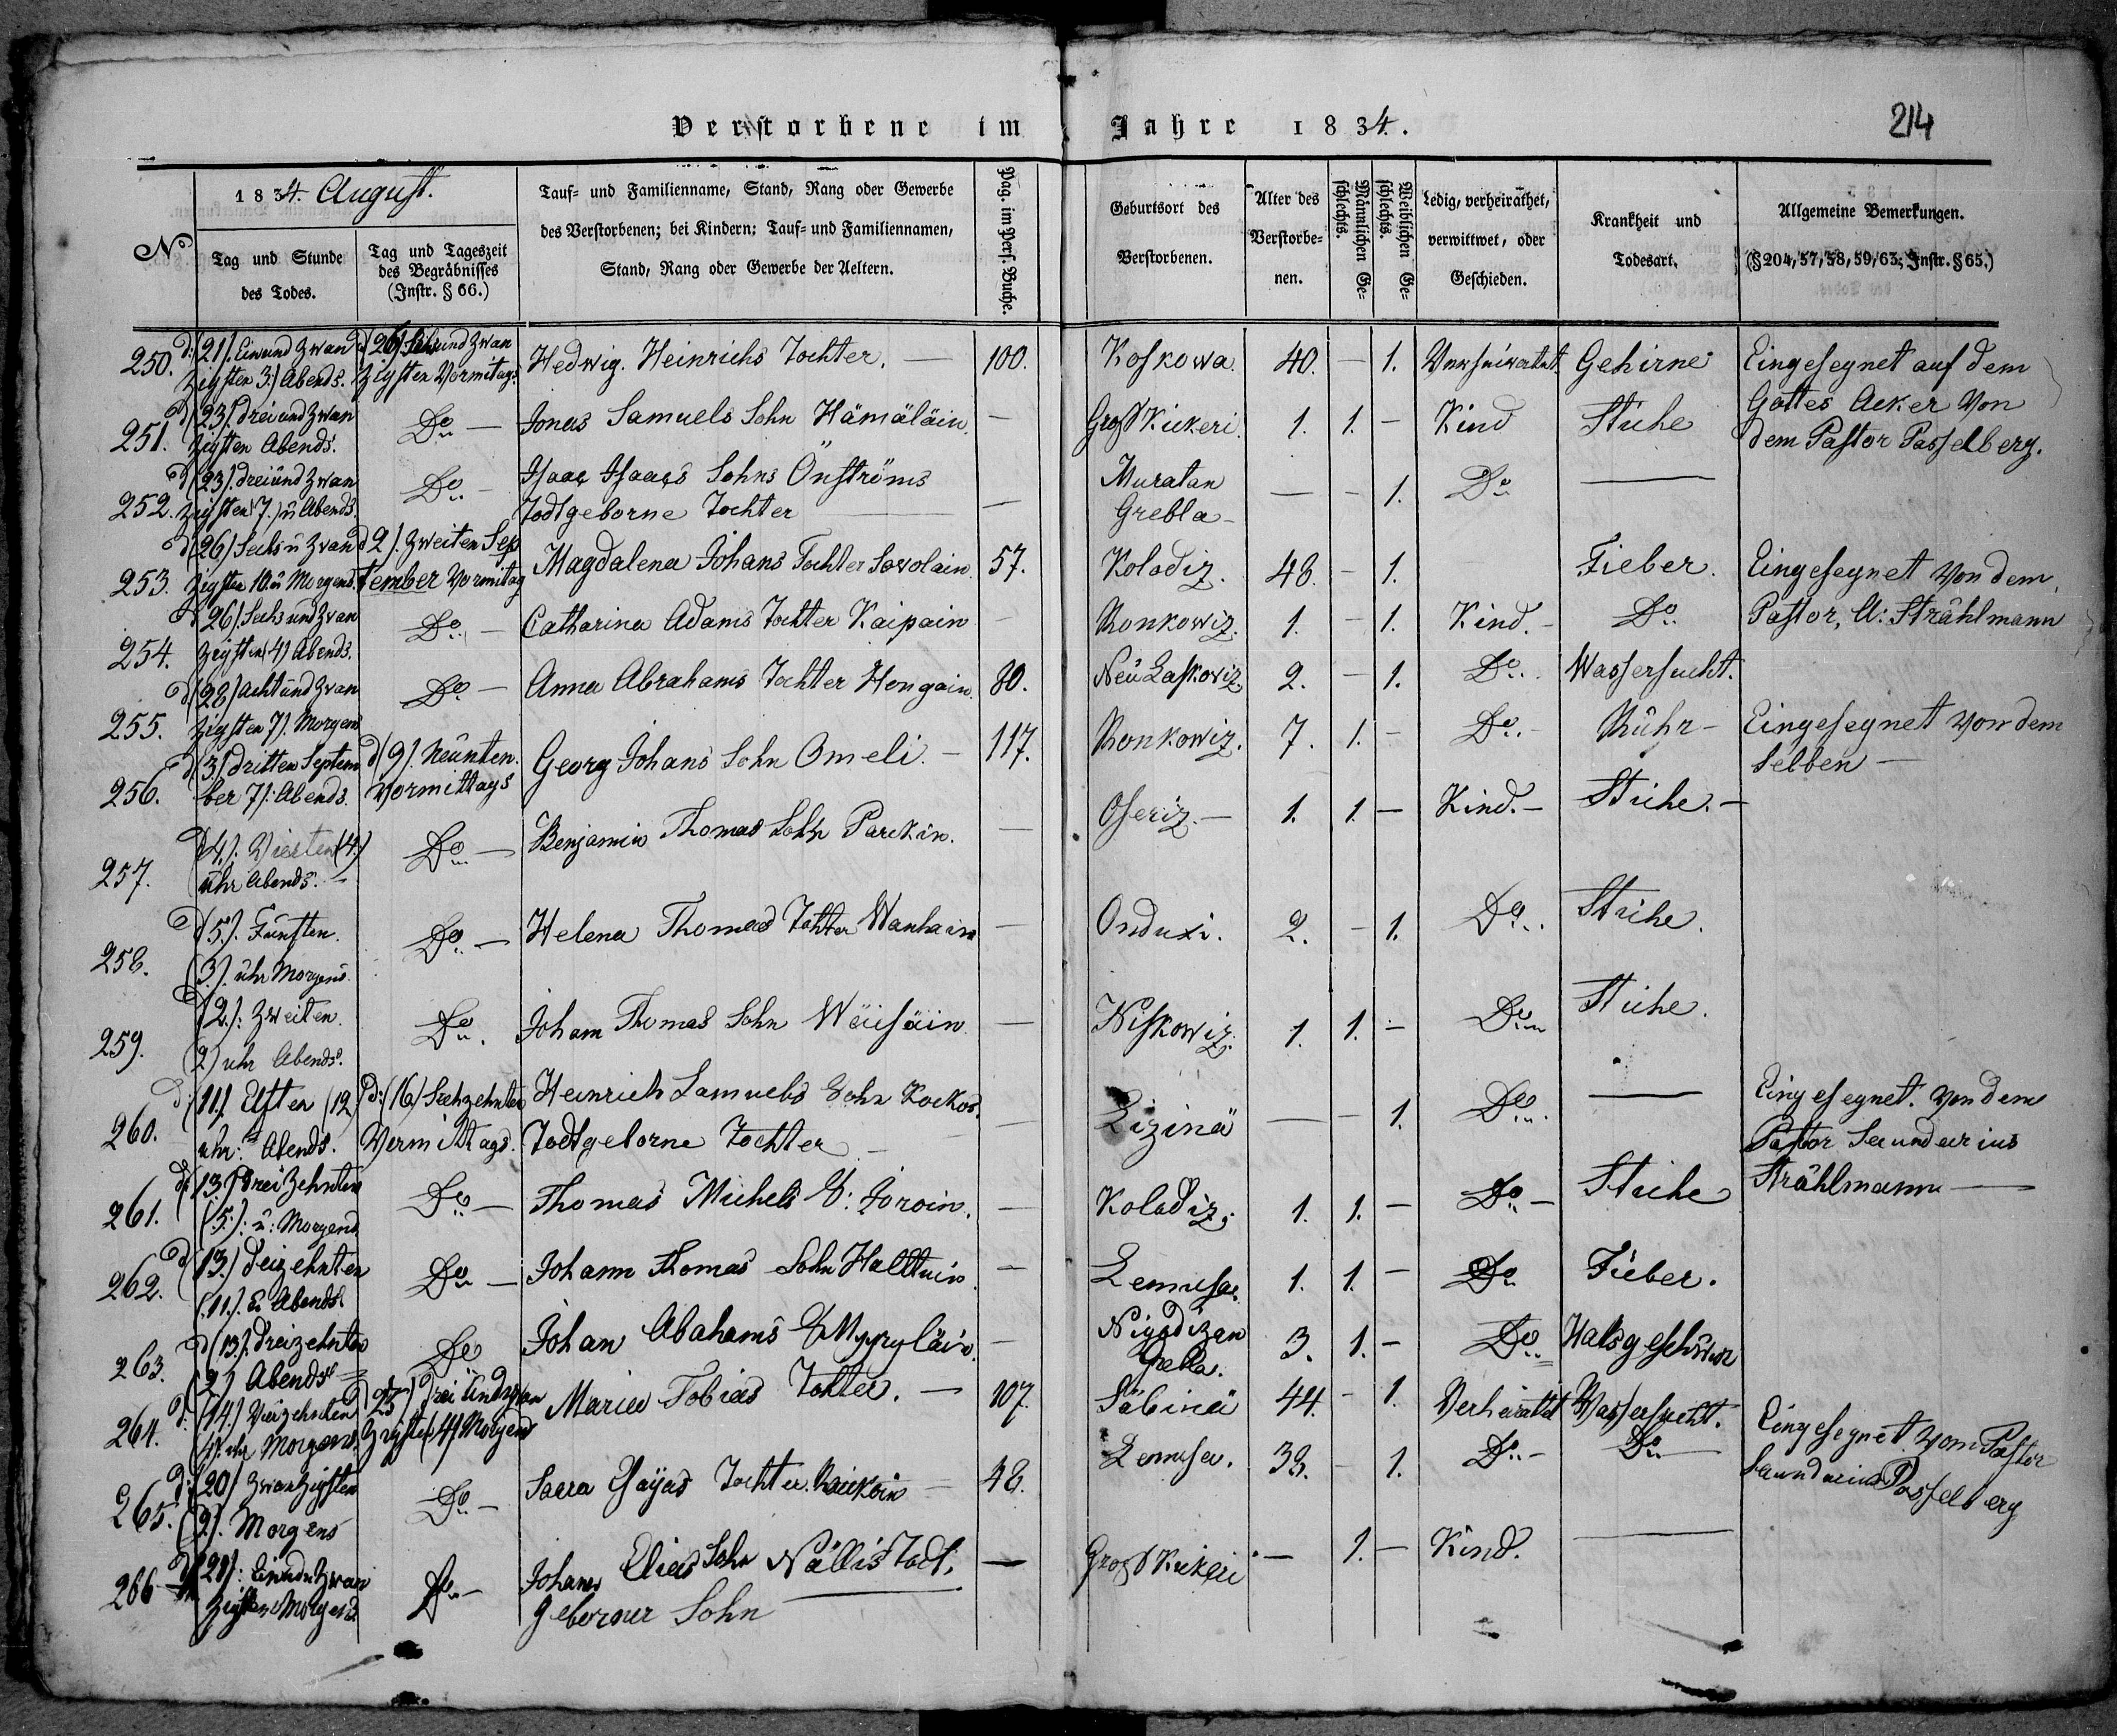 Verstorbene im Jahre 1834.
214
No
1834. August.
Tag und Stunde
des Todes.
Tag und Tageszeit
des Begräbnisses
(Instr. § 66.)
Tauf- und Familienname, Stand, Rang oder Gewerbe
des Verstorbenen; bei Kindern; Tauf- und Familiennamen,
Stand, Rang oder Gewerbe der Aeltern.
Pag. im Pers. Buche.
Geburtsort des
Verstorbenen.
Alter des
Verstorbe-
nen.
Männlichen Ge-
schlechts.
Weiblichen Ge-
schlechts.
Ledig, verheirathet,
verwittwet, oder
Geschieden.
Krankheit und
Todesart.
Allgemeine Bemerkungen.
(§ 204, 57, 58, 59, 63; Instr. § 65.)
250. d: 21). Ein und Zwan
zigsten 3) Abends.
d 26) Sechs und Zwan
zigsten Vormitags.
Hedwig. Heinrichs Tochter. — 100. Koskowa. 40. — 1. Gehirne
Eingesegnet auf dem
Gottes Acker Von
dem Pastor Passelberg.
251. d 23). drei und Zwan
zigsten Abends.
Do — Jonas Samuels Sohn Hämäläin. — Groß Kickeri. 1. 1. — Kind
252. d 23). drei und Zwan
zigsten (7.) u Abends.
Do — Isaac Isaacs Sohns Önströms
Todtgeborne Tochter — Muratan
Grebla — — — 1. Do —
253. d 26) Sechs u Zwan
zigsten 10. u Morgend.
d 2). Zweiten Sep
tember Vormitag
Magdalena Johans Tochter Sawolain 57. Kolodiz. 48. — 1. Fieber.
Eingesegnet Von dem
Pastor, A: Strählmann
254. d 26) Sechs und Zwan
zigsten (4) Abends.
Do — Catharina Adams Tochter Kaipain — Ronkowiz. 1. — 1. Kind. — Do
255. d 28) acht und Zwan
zigsten 7). Morgens
Do — Anna Abrahams Tochter Hengain. 80. Neu Laskowiz 2. — 1. Do. Wassersucht.
256. d 3) dritten Septem
ber 7). Abends.
d (9). Neunten.
Vormittags
Georg Johans Sohn Omeli. — 117. Ronkowiz. 7. 1. — Do. Ruhr —
Eingesegnet Von dem
Selben —
257. d 4). Vierten (4.)
uhr Abends. —
Do — Benjamin Thomas Sohn Parckin. — Oseriz. — 1. 1. — Kind. —
258. d (5.). Fünften.
(3). uhr Morgens.
Do — Helena Thomas Tohter Wanhain — Onduxi. 2. — 1. Do.
259. d (2.). Zweiten.
(2) uhr Abends.
Do. Joham Thomas Sohn Wäisäin — Kiskowiz. 1. 1. — Do
260. d: (11) Elften (12)
uhr: Abends.
d: (16) Sechzehnten
Vormittags.
Heinrich Samuels Sohn
Todtgeborne Tochter — Lizinä — — 1. Do. —
Eingesegnet. Von dem
Pastor Secundarius
Strählmann —
261. d: 13) Dreizehnten
(5.). u: Morgend.
Do — Thomas Michels S: Joroin. — Kolodiz. 1. 1. — Do —
262. d (13.) dreizehnten
(11.). Abends.
Do — Johann Thomas Sohn Halttuin. — Lemusa. 1. 1. — Do Fieber.
263. d (13.). dreizehnten
2) Abends
Do Johan Abahams S Myyryläin. — Nigodizan
Grebla. 3. 1. — Do.
264. d: (14.) Vierzehnten
(4). uhr Morgens.
d 23) Drei Undzwan
Zigsten (4) Morgend
Maria Tobias Tohter. — 107. Säbinä 44. — 1. Verheiratet Wassersucht.
Eingesegnet vom Pastor
Secundarius Passelberg
265. d: 20) Zwanzigsten
(2). Morgens
Do — Sara Esayas Tochter Raickoin — 48. Lemusa. 38. — 1. Do — Do —
266 d 21): Einundzwan
zigsten Morgend.
Do — Johans Elias Sohn Nällis Todt,
Geborner Sohn — Groß Kickeri. — 1. — Kind. —